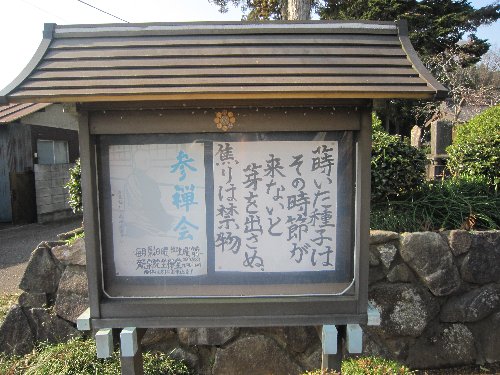 蒔いた種子は
その時節が
来ないと
芽を出さぬ、
焦りは禁物
参禅会